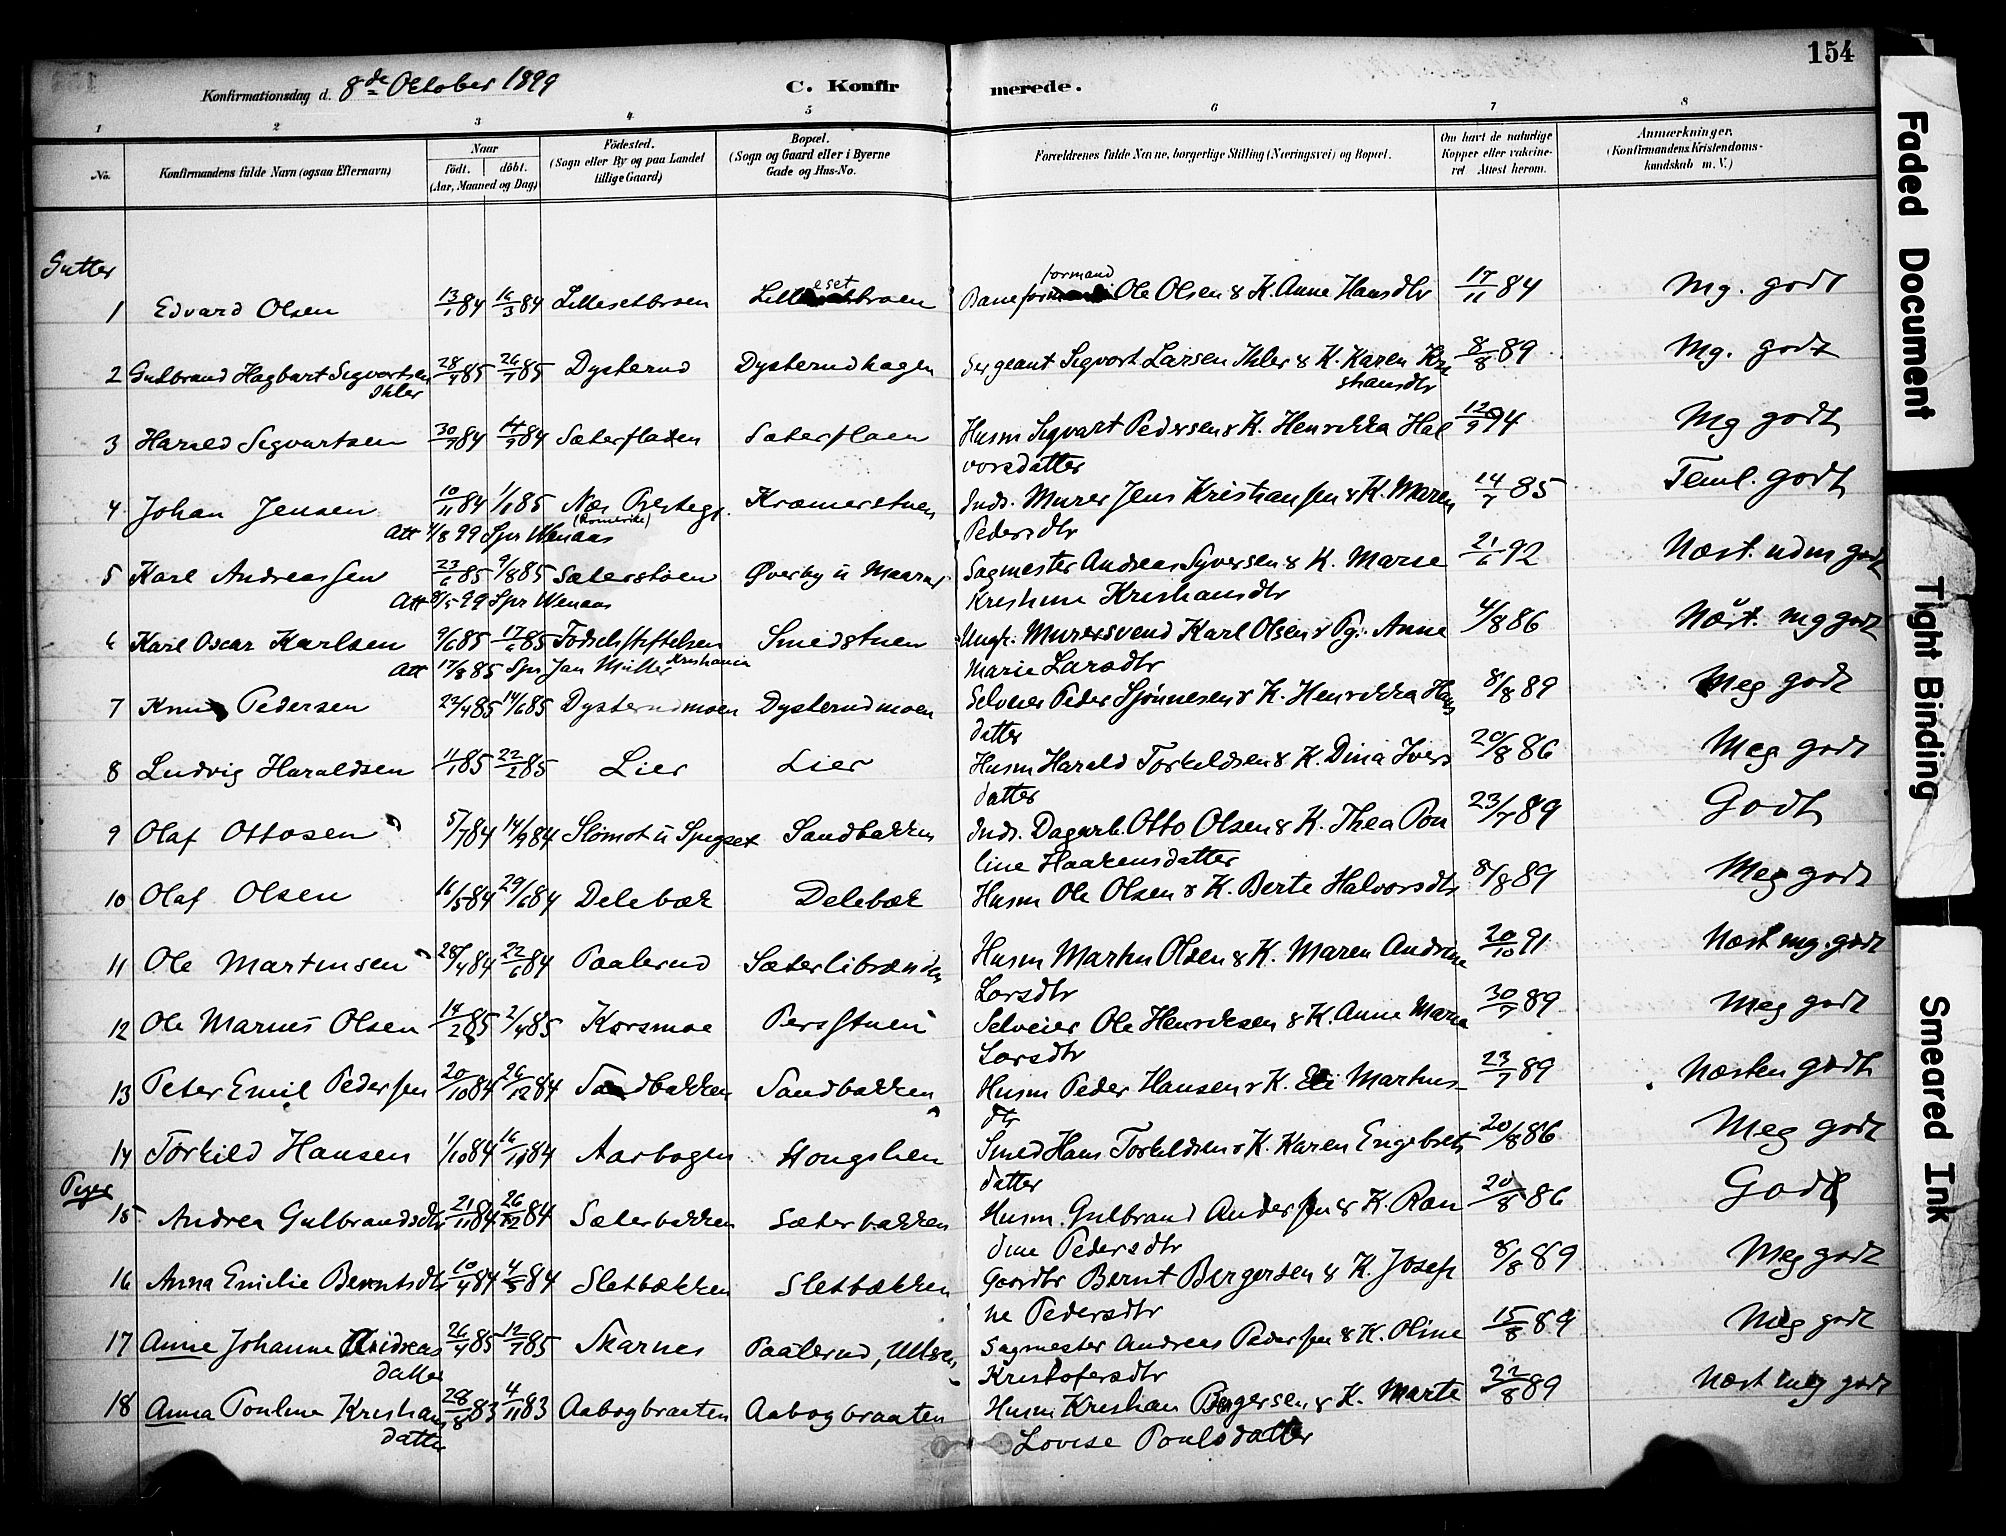 154
Konfirmationsdag d. 8de October 1899 C. Konfirmerede.
1 2 3 4 5 6 7 8
No. Konfirmandens fulde Navn (ogsaa Efternavn) Naar født. døbt. (Aar, Maaned og Dag) Födested. (Sogn eller By og paa Landet tillige Gaard) Bopæl. (Sogn og Gaard eller i Byerne Gade og Hus-No. Forældrenes fulde Navne, borgerlige Stilling (Næringsvei) og Bopæl. Om havt de naturlige Kopper eller vakcineret Attest herom. Anmærkninger. (Konfirmandens Kristendomskundskab m. V.)
Gutter
1 Edvard Olsen 13/1 84 16/3 84 Lillesetbroen Lillesetbroen Baneformand Ole Olsen & K. Anne Hansdtr 17/11 84 Mg. godt
2 Gulbrand Hagbart Sigvartsen Ihler 28/4 85 26/7 85 Dysterud Dysterudhagen Sergeant Sigvart Larsen Ihler & K. Karen Kristiansdtr 8/8 89 Mg. godt
3 Harald Sigvartsen 30/7 84 14/9 84 Sæterflaten Sæterflaen Husm Sigvart Pedersen & K. Henrikka Halvorsdatter 12/9 94 Mg godt
4 Johan Jensen 10/11 84 1/1 85 Nes Prestegj. (Romerike) Kræmerstuen Inds. Murer Jens Kristiansen & K. Maren Pedersdtr 14/7 85 Teml. godt
Att 4/8 99 Spr Wenaas
5 Karl Andreassen 23/6 85 9/8 85 Sæterstøen Øverby u Maarud Sagmester Andreas Syversen & K. Marie Kristine Kristiansdtr 21/6 92 Næst. udm godt
Att 8/5 99 Spr Wenaas
6 Karl Oscar Karlsen 9/6 85 17/6 85 Födselsstiftelsen Kristiania Smedstuen Ungk. Murersvend Karl Olsen & Pg. Anne Marie Larsdtr 4/8 86 Næst. mg godt
Att 17/8 85 Spr Jan Müller
7 Knut Pedersen 22/4 85 14/6 85 Dysterudmoen Dysterudmoen Selveier Peder Sjönnesen & K. Henrikka Hansdatter 8/8 89 Meg godt
8 Ludvig Haraldsen 11/1 85 22/2 85 Lier Lier Husm Harald Torkildsen & K. Dina Iversdatter 20/8 86 Meg godt
9 Olaf Ottosen 5/7 84 14/9 84 Slömot u Spigset Sandbakken Inds. Dagarb. Otto Olsen & K. Thea Pouline Haakensdatter 23/7 89 Godt
10 Olaf Olsen 16/5 84 29/6 84 Delebæk Delebæk Husm Ole Olsen & K. Berte Halvorsdtr 8/8 89 Meg godt
11 Ole Martinsen 28/4 84 22/6 84 Paalerud Sæterlibrænden Husm Martin Olsen & K. Maren Andrine Larsdtr 20/10 91 Næst mg. godt
12 Ole Marius Olsen 14/2 85 2/4 85 Korsmoe Persstuen Selveier Ole Henriksen & K. Anne Maria Larsdtr 30/7 89 Meg godt
13 Peter Emil Pedersen 20/10 84 26/12 84 Sandbakken Sandbakken Husm Peder Hansen & K. Eli Martinsdtr 23/7 89 Næsten godt
14 Torkild Hansen 1/10 84 16/11 84 Aarbogen Hongslien Smed Hans Torkildsen & K. Karen Engebretsdatter 20/8 86 Meg godt
Piger
15 Andrea Gulbrandsdtr 21/11 84 26/12 84 Sæterbakken Sæterbakken Husm. Gulbrand Andersen & K. Randine Pedersdtr 20/8 86 Godt
16 Anna Emilie Berntsdtr 10/4 84 4/5 84 Sletbækken Sletbækken Gaardbr Bernt Bergersen & K. Josefine Pedersdtr 8/8 89 Meg godt
17 Anne Johanne Andreasdatter 26/4 85 12/7 85 Skarnes Paalerud, Ullern Sagmester Andreas Pedersen & K. Oline Kristofersdtr 15/8 89 Meg godt
18 Anna Pouline Kristiansdatter 28/8 83 4/11 83 Aabogbraaten Aabogbraaten Husm Kristian Bergersen & K. Marte Lovise Poulsdatter 22/8 89 Næst meg godt
Faded Document
Tight Binding
Smeared Ink